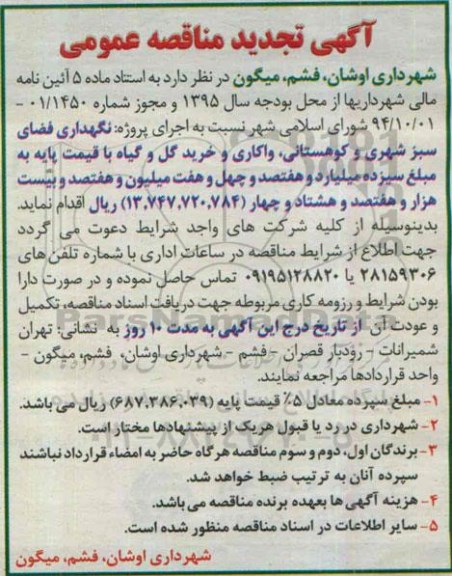 آگهی تجدید مناقصه عمومی
شهرداری اوشان، فشم، میگون در نظر دارد به استناد ماده ۵ آئین نامه
مالی شهرداریها از محل بودجه سال ۱۳۹۵ و مجوز شماره ۰۱/۱۴۵۰ -
۹۴/۱۰/۰۱ شورای اسلامی شهر نسبت به اجرای پروژه: نگهداری فضای
سبز شهری و کوهستانی، واکاری و خرید گل و گیاه با قیمت پایه به
مبلغ سیزده میلیارد و هفتصد و چهل و هفت میلیون و هفتصد و بیست
هزار و هفتصد و هشتاد و چهار (۱۳،۷۴۷،۷۲۰،۷۸۴) ریال اقدام نماید.
بدینوسیله از کلیه شرکت های واجد شرایط دعوت می گردد
جهت اطلاع از شرایط مناقصه در ساعات اداری با شماره تلفن های
۲۸۱۵۹۳۰۶ یا ۰۹۱۹۵۱۲۸۸۲۰ تماس حاصل نموده و در صورت دارا
بودن شرایط و رزومه کاری مربوطه جهت دریافت اسناد مناقصه، تکمیل
و عودت آن از تاریخ درج این آگهی به مدت ۱۰ روز به نشانی: تهران
شمیرانات - رودبار قصران - فشم - شهرداری اوشان، فشم، میگون -
واحد قراردادها مراجعه نمایند.
۱- مبلغ سپرده معادل ۵٪ قیمت پایه (۶۸۷،۳۸۶،۰۳۹) ریال می باشد.
۲- شهرداری در رد یا قبول هریک از پیشنهادها مختار است.
۳- برندگان اول، دوم و سوم مناقصه هرگاه حاضر به امضاء قرارداد نباشند
سپرده آنان به ترتیب ضبط خواهد شد.
۴- هزینه آگهی ها بعهده برنده مناقصه می باشد.
۵- سایر اطلاعات در اسناد مناقصه منظور شده است.
شهرداری اوشان، فشم، میگون
ParsNamadData